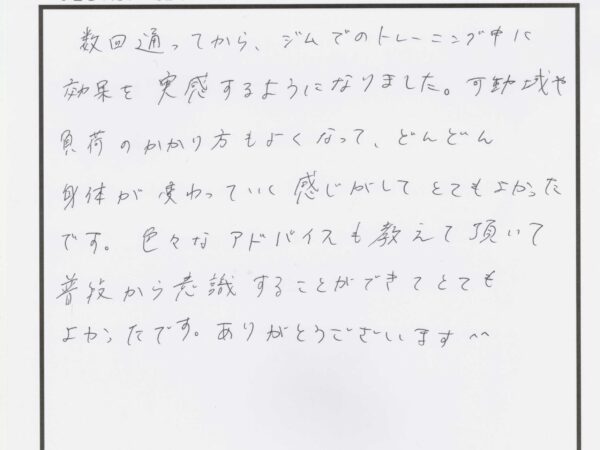 数回通ってから、ジムでのトレーニング中に
効果を実感するようになりました。可動域や
負荷のかかり方もよくなって、どんどん
身体が変わっていく感じがしてとてもよかった
です。色々なアドバイスも教えて頂いて
普段から意識することができてとても
よかったです。ありがとうございます^^